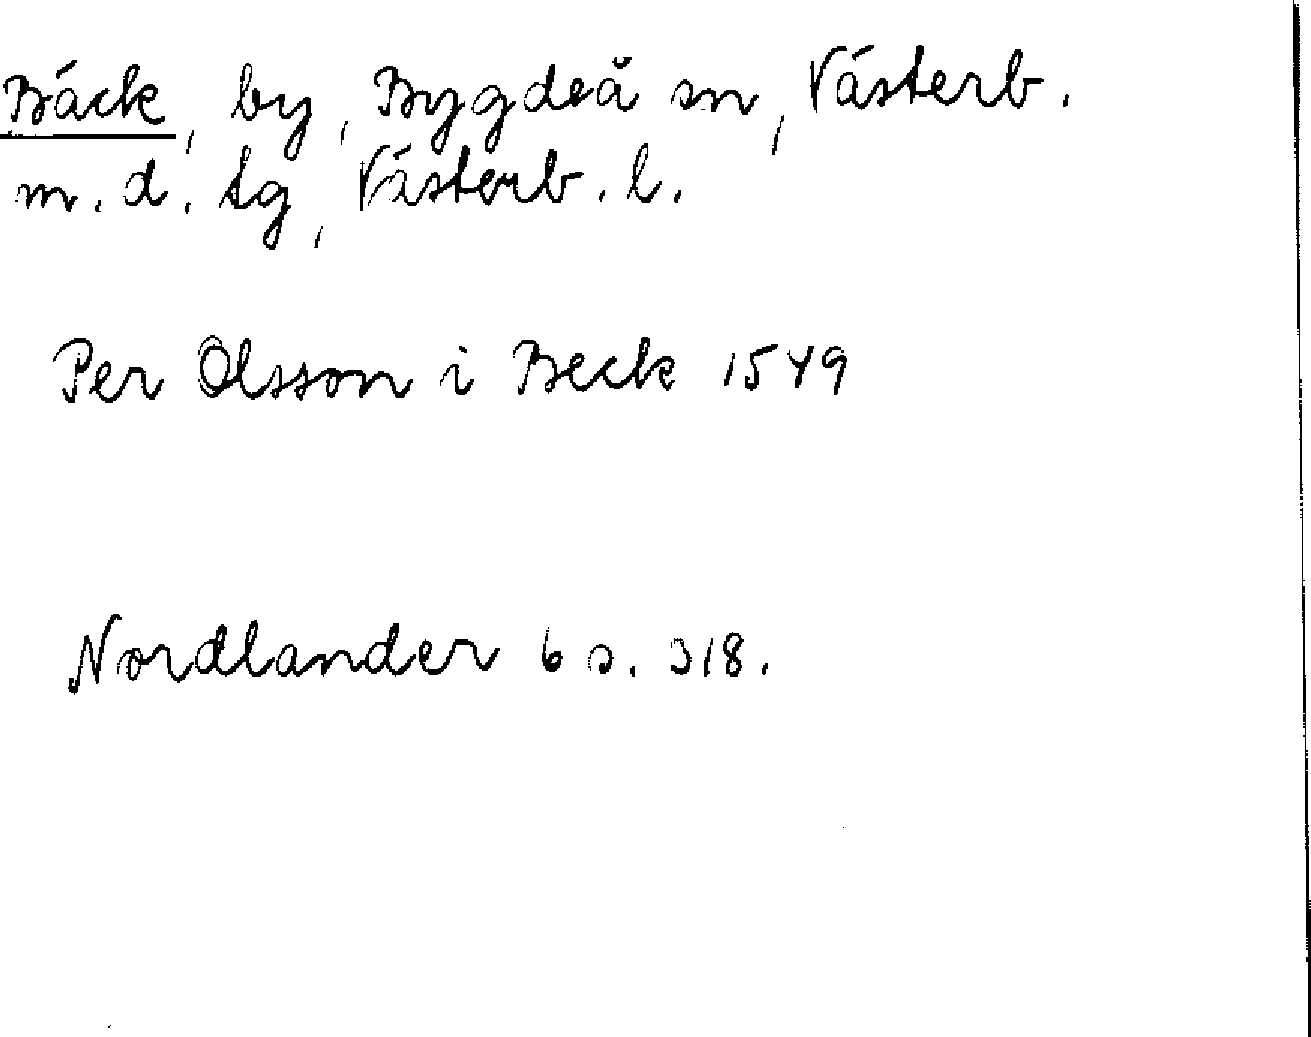 Bäck, by, Bygdeå sn, Västerb.
m. d. tg, Västerb. l.
Per Olsson i Beck 1549
Nordlander 6 s. 318.